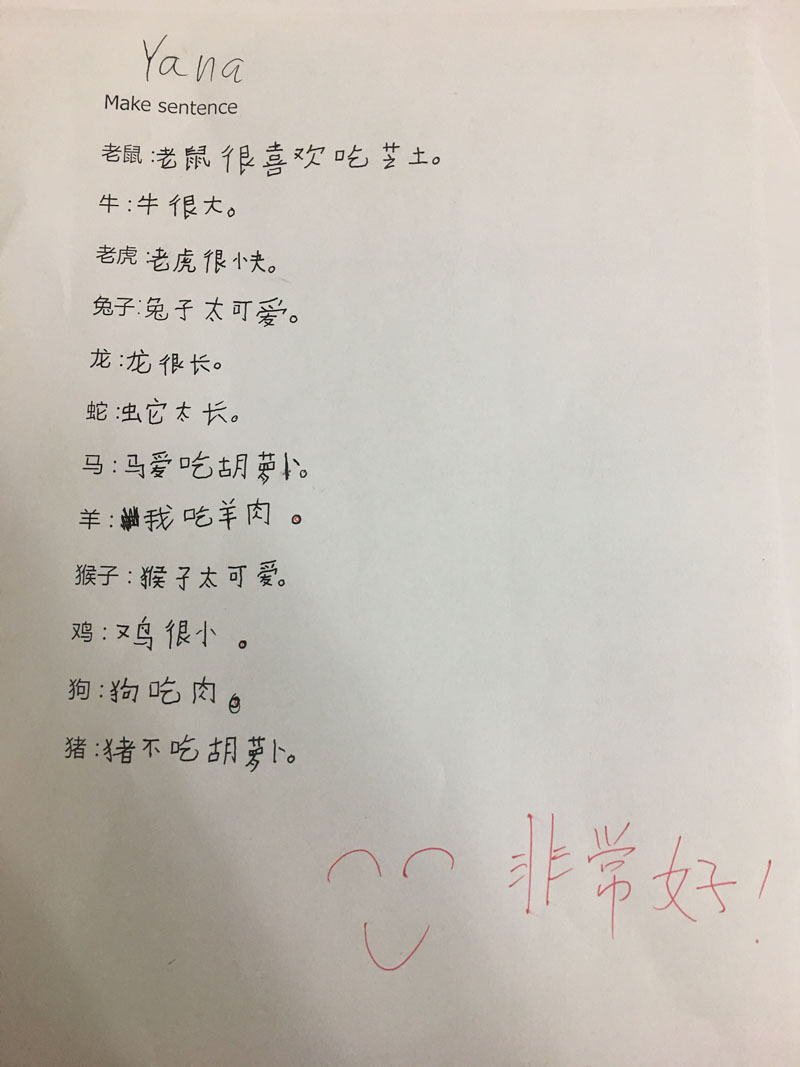 Yana
Make sentence
老鼠:老鼠很喜欢吃芝土。
牛:牛很大。
老虎:老虎很快。
兔子:兔子太可爱。
龙:龙很长。
蛇:蛇太长。
马:马爱吃胡萝卜。
羊:我吃羊肉。
猴子:猴子太可爱。
鸡:鸡很小。
狗:狗吃肉。
猪:猪不吃胡萝卜。
非常好!